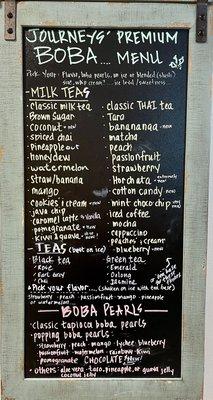 JOURNEYS' PREMIUM
BOBA.... MENU
Pick Your • Flavor, boba pearls, on ice or blended (slush)
size, whip cream? ... ice level / sweetness
-MILK TEAS
• classic milk tea • classic THAI tea
• Brown Sugar • Taro
• coconut • new • banananga • new
• spiced chai • matcha
• pineapple • peach
• honeydew • passionfruit
• watermelon • strawberry
• straw/banana • Horchata • extremely new
• mango • cotton candy • new
• cookies & cream • new • mint choco chip • new
• java chip • iced coffee
• caramel latte • vanilla • mocha
• pomegranate • new • cappuccino
• Kiwi & guava • peaches & cream
-TEAS (best on ice) • blueberry • new
• Black tea • Green tea
• Rose • Emerald
• Earl Grey • Oolong
• Chai • Jasmine
• Pick your flavor.... (shaken on ice with tea base)
strawberry • peach • passionfruit • mango • pineapple
or watermelon
BOBA PEARLS
- classic tapioca boba pearls
- popping boba pearls:
• strawberry • peach • mango • lychee • blueberry
• passionfruit • watermelon • rainbow • Kiwi
• pomegranate • CHOCOLATE • new
• Others: aloe vera, taro, pineapple, or guava jelly
coconut jelly